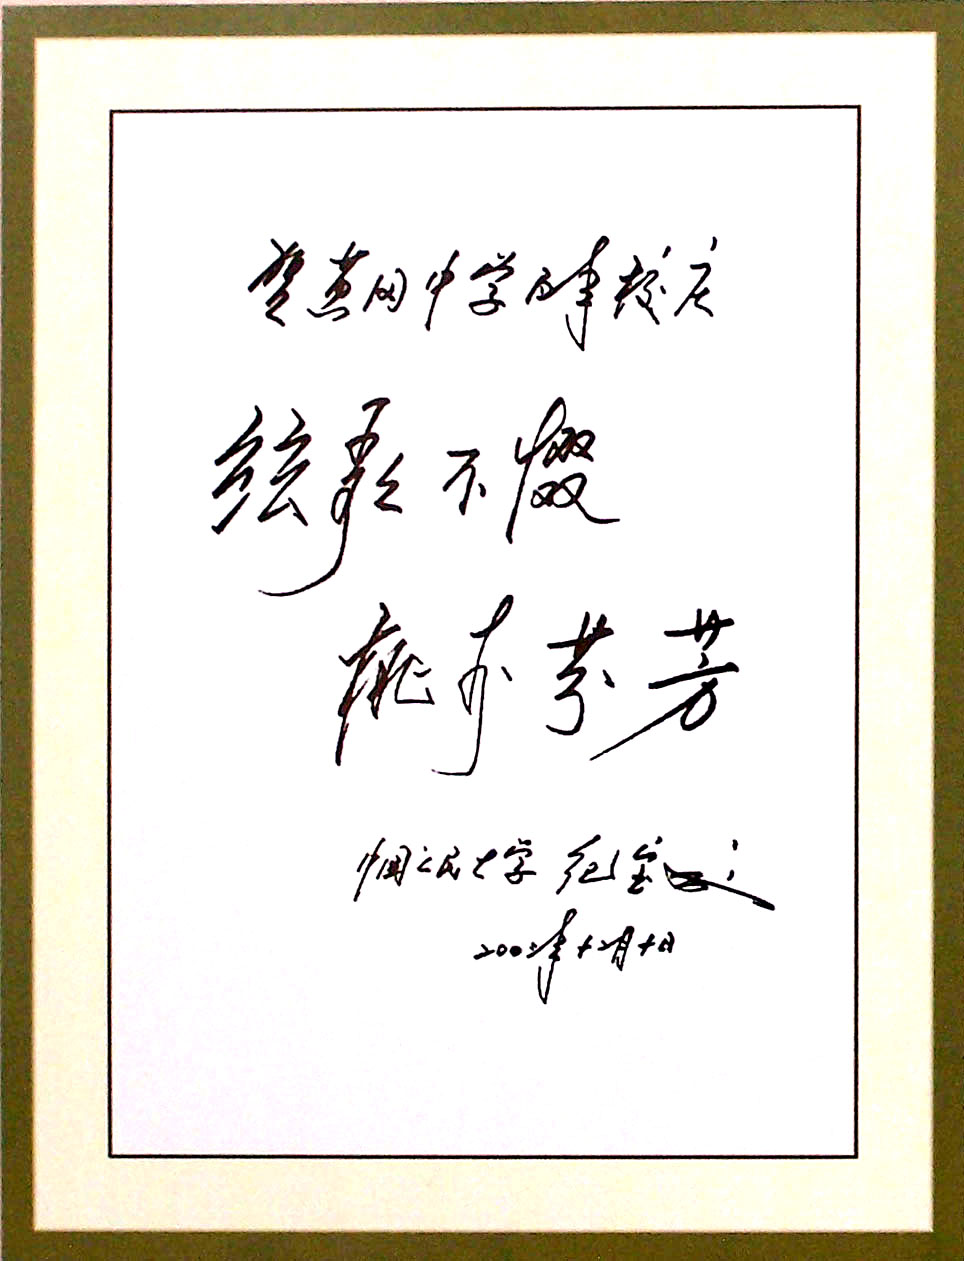 贺黄冈中学百年校庆
絃歌不惙
桃李芬芳
中国人民大学 纪宝成
年十二月十日